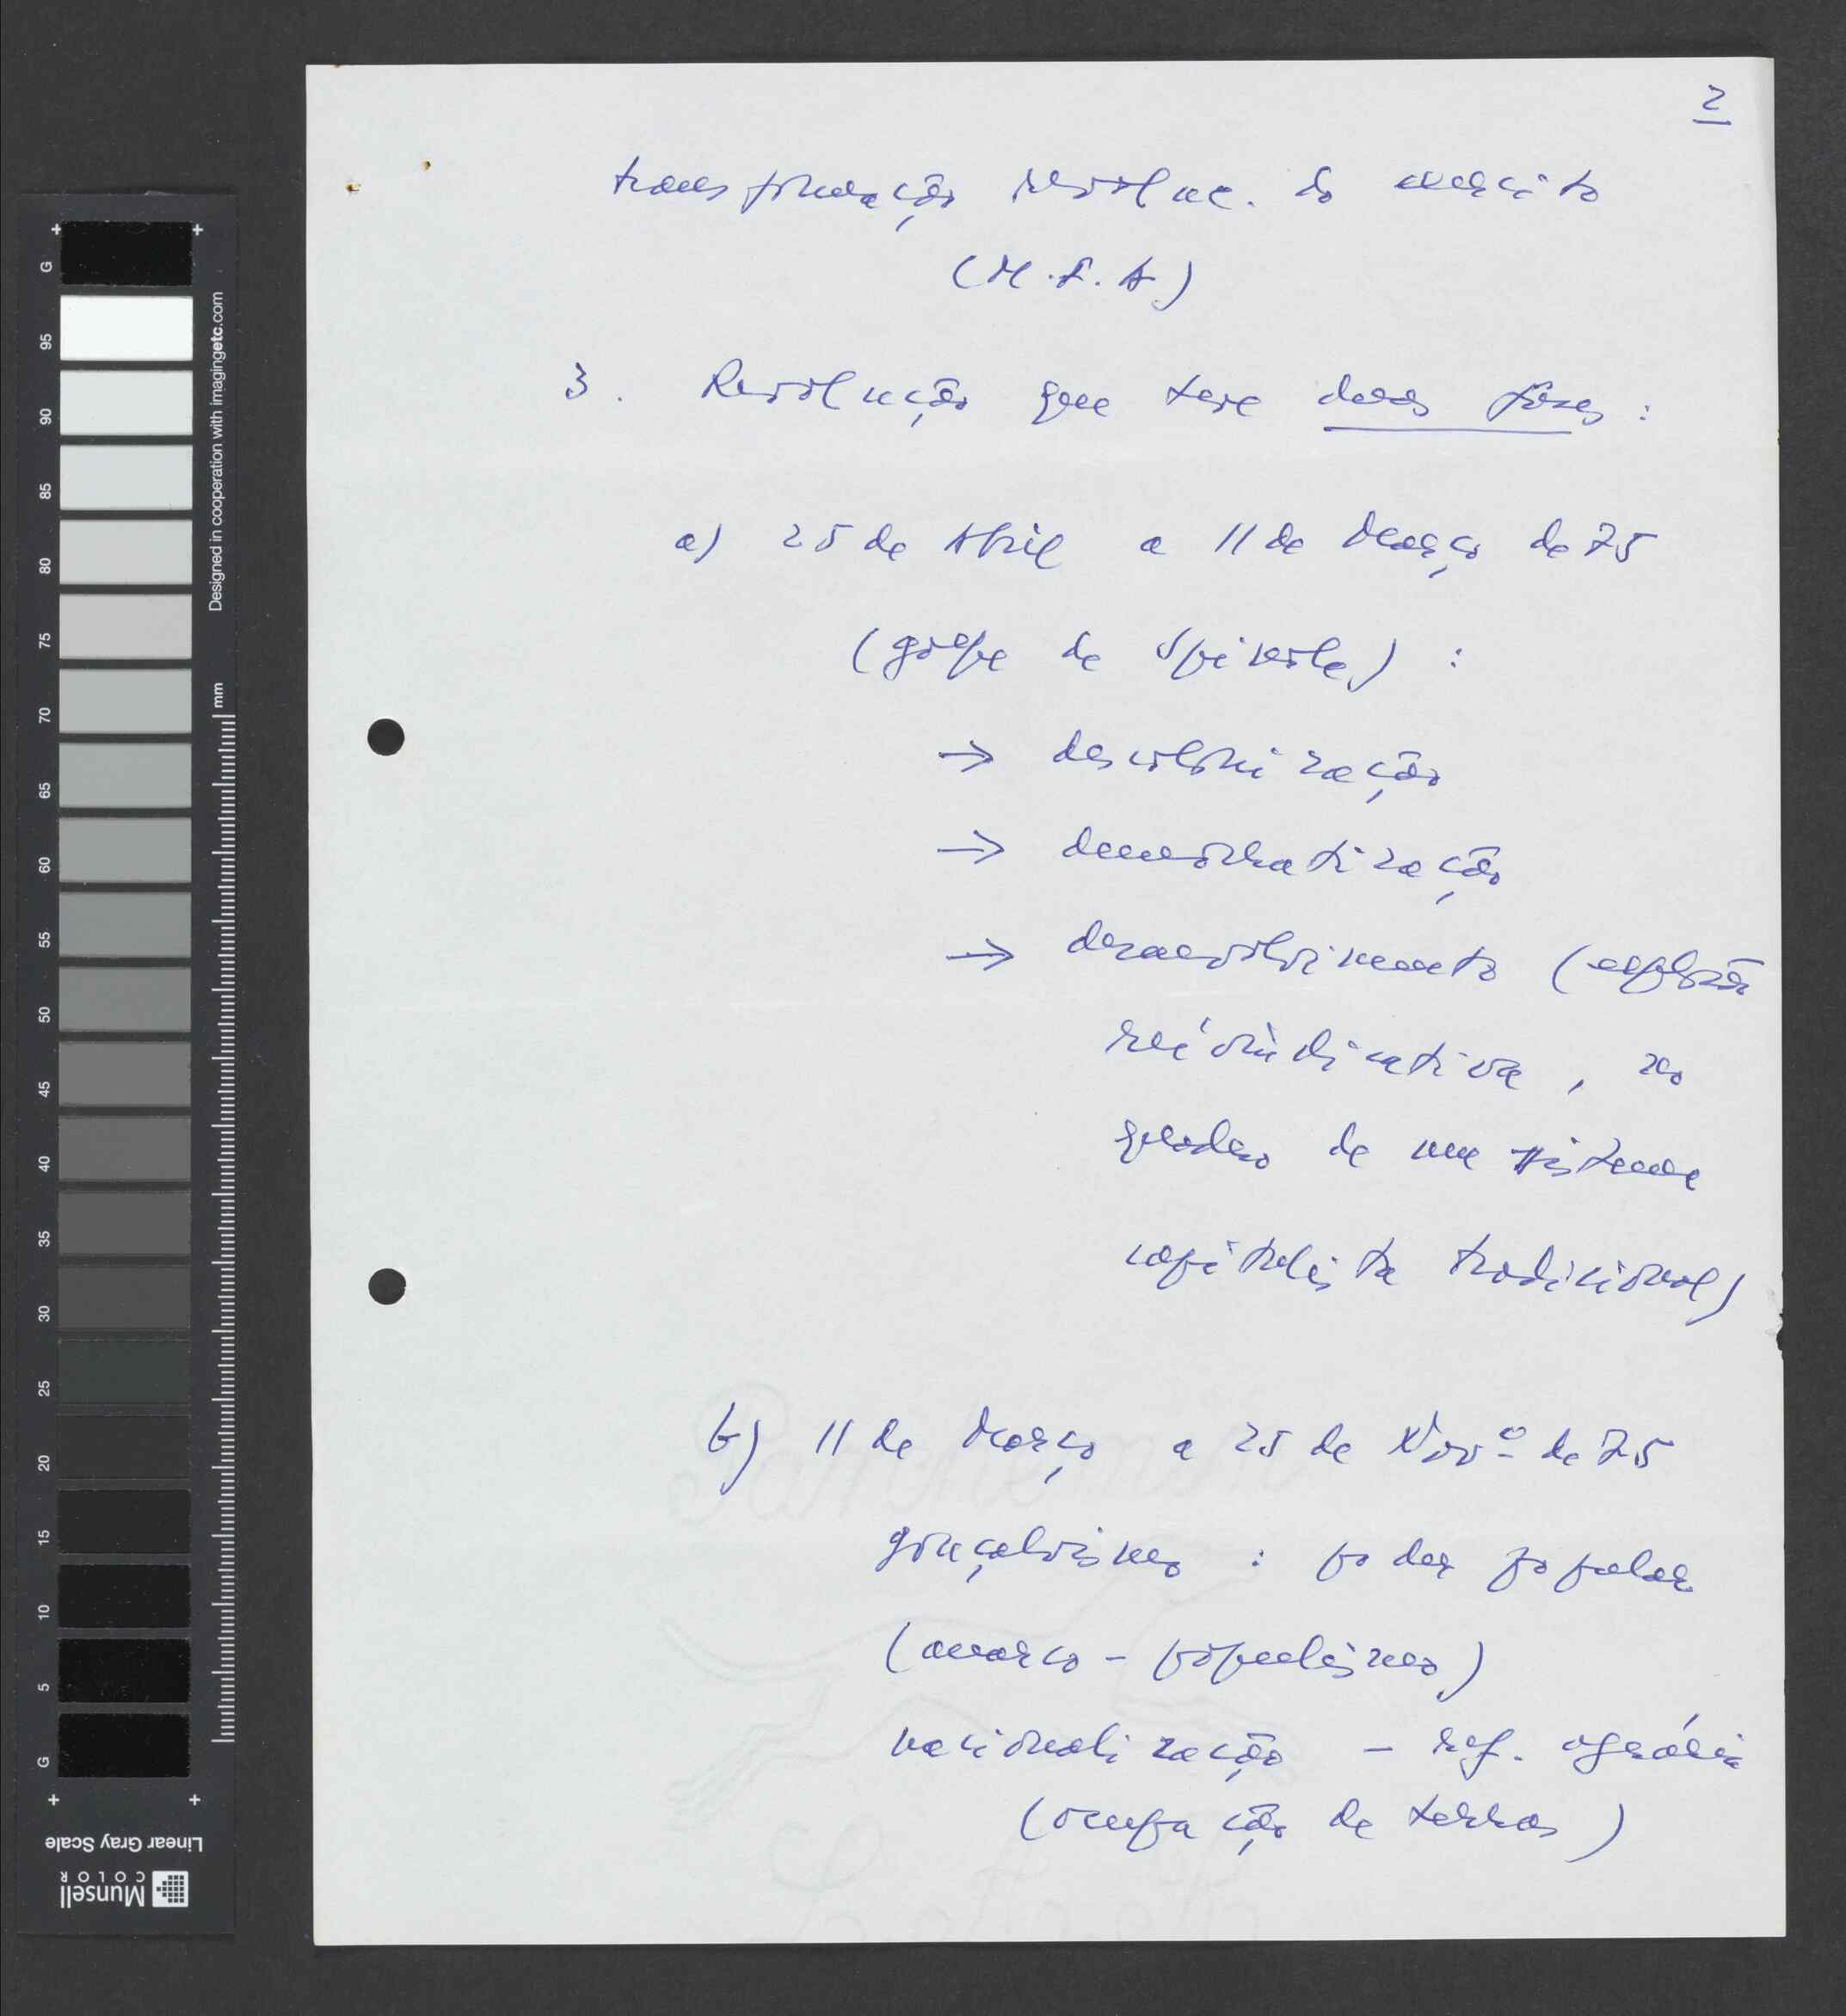 2
transformação revoluc. do exército
(M.F.A.)
3. Revolução que teve duas fases:
a) 25 de Abril a 11 de Março de 75
(golpe de Spínola) :
→ descolonização
→ democratização
→ desenvolvimento (explosão
reivindicativa, no
quadro de um sistema
capitalista tradicional)
b) 11 de Março a 25 de Novº de 75
gonçalvismo : poder popular
(anarco-populismo)
nacionalização – ref. agrária
(ocupação de terras)
G 95 90 85 80 75 70 65 60 55 50 45 40 35 30 25 20 15 10 5 G
Designed in cooperation with imagingetc.com
mm
Linear Gray Scale
Munsell
COLOR